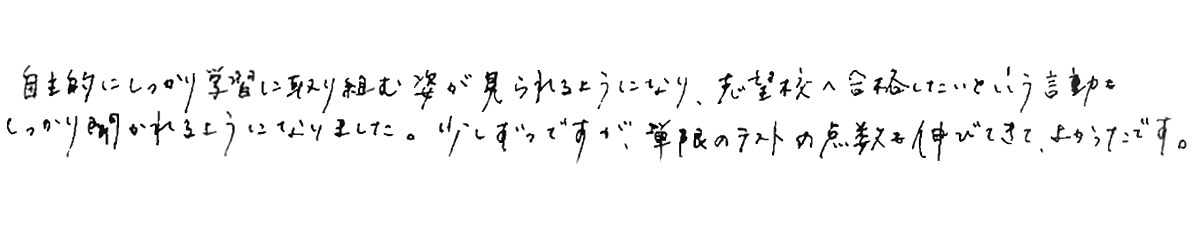 自主的にしっかり学習に取り組む姿が見られるようになり、志望校へ合格したいという言動も
しっかり聞かれるようになりました。少しずつですが、単限のテストの点数も伸びてきて、よかったです。